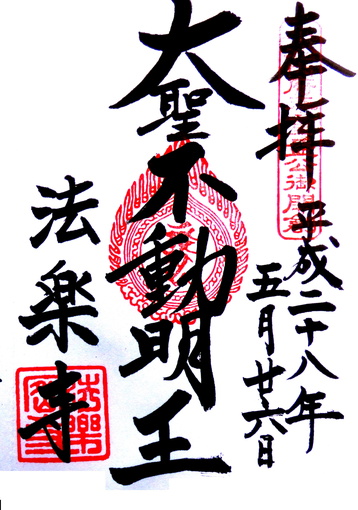 奉拝
平成二十八年
五月廿六日
大聖不動明王
法楽寺